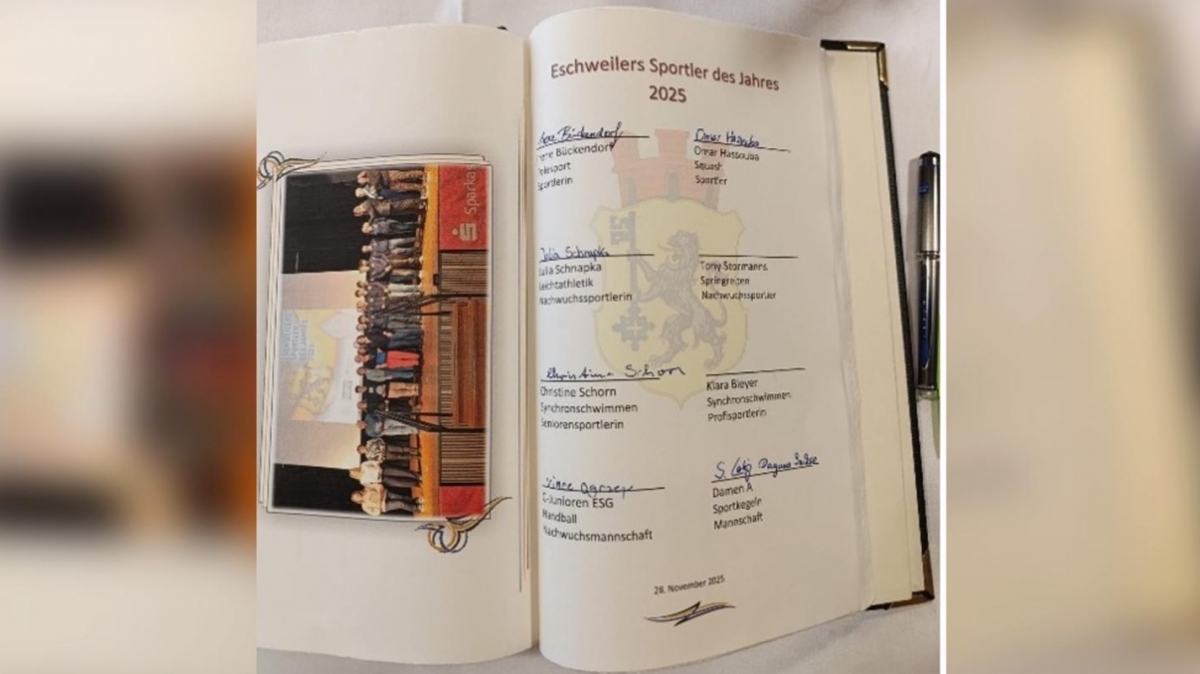 Eschweilers Sportler des Jahres
2025
Bückendorf
Bückendorf
Sportlerin
Omar Hassouba
Omar Hassouba
Squash
Sportler
Julia Schnapka
Julia Schnapka
Leichtathletik
Nachwuchssportlerin
Tony Stormanns
Springreiten
Nachwuchssportler
Christine Schorn
Christine Schorn
Synchronschwimmen
Seniorensportlerin
Klara Bleyer
Synchronschwimmen
Profisportlerin
C-Junioren ESG
Handball
Nachwuchsmannschaft
S.
Damen A
Sportkegeln
Mannschaft
28. November 2025
Sparka